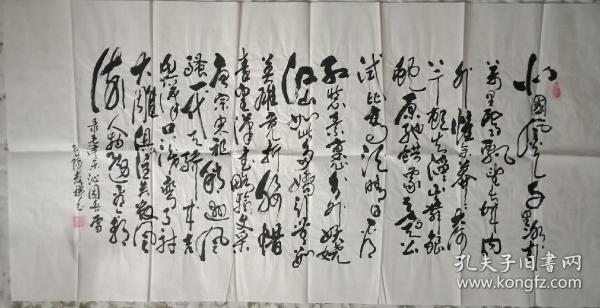 北国风光千里冰封
万里雪飘望长城内
外惟余莽莽大河
上下顿失滔滔山舞银
蛇原驰蜡象欲与天公
试比高须晴日看
红装素裹分外妖娆
江山如此多娇引无数
英雄竞折腰惜
秦皇汉武略输文采
唐宗宋祖稍逊风
骚一代天骄成吉
思汗只识弯弓射
大雕俱往矣数风
流人物还看今朝
录毛泽东沁园春雪
孔夫子旧书网
www.kongfz.com